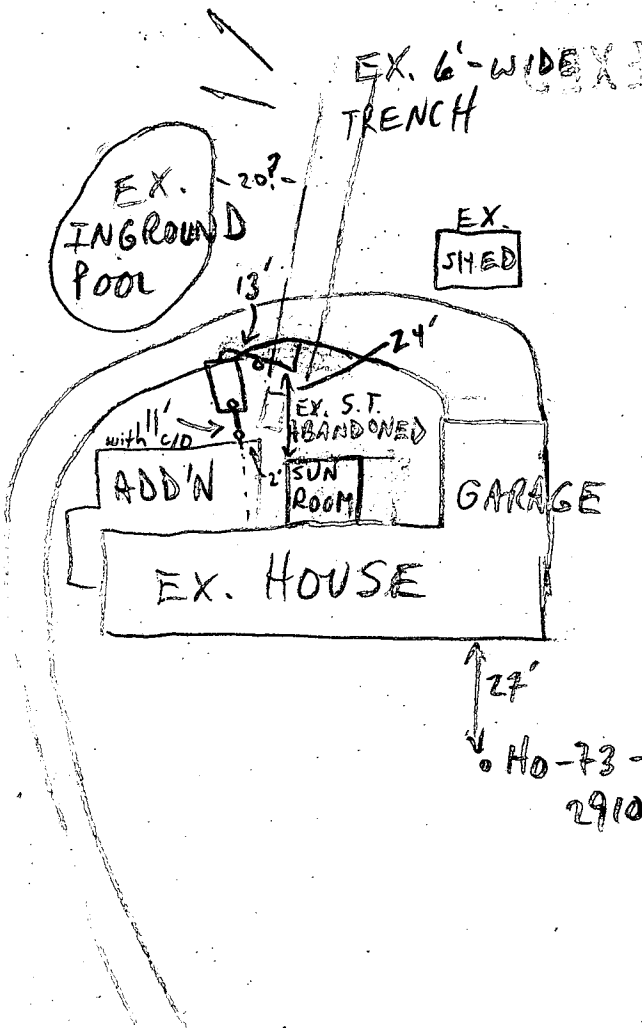 EX. 6'-WIDE
TRENCH
EX.
INGROUND
POOL
-20?-
EX.
SHED
13'
24'
EX. S.T.
ABANDONED
with 11' c/o
2'
ADD'N
SUN
ROOM
GARAGE
EX. HOUSE
27'
HO-73-
2910